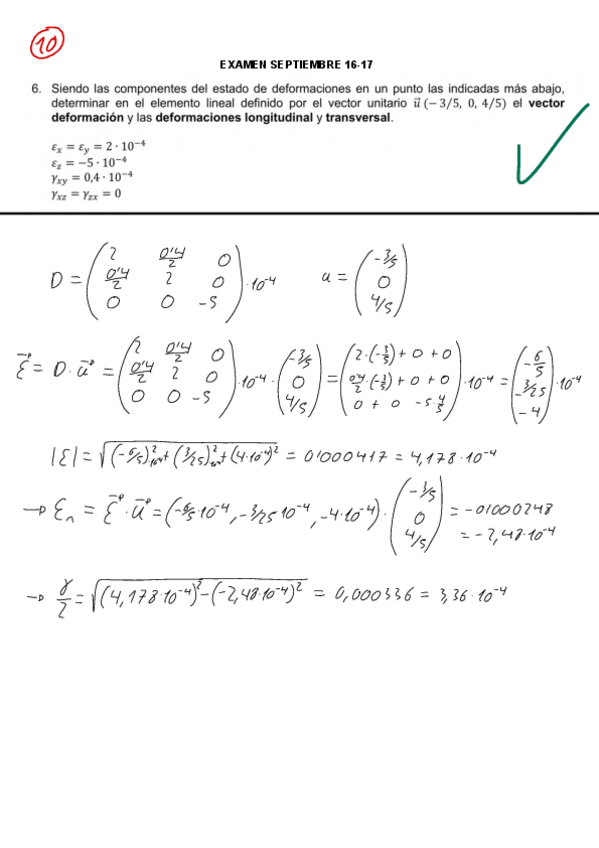 10
EXAMEN SEPTIEMBRE 16-17
6. Siendo las componentes del estado de deformaciones en un punto las indicadas más abajo,
determinar en el elemento lineal definido por el vector unitario u⃗ (− 3/5, 0, 4/5) el vector
deformación y las deformaciones longitudinal y transversal.
εx = εy = 2 · 10⁻⁴
εz = −5 · 10⁻⁴
γxy = 0,4 · 10⁻⁴
γxz = γzx = 0
D = (2 0'4/2 0; 0'4/2 2 0; 0 0 -5) · 10⁻⁴ u = (-3/5; 0; 4/5)
ε⃗ = D · u⃗ = (2 0'4/2 0; 0'4/2 2 0; 0 0 -5) · 10⁻⁴ · (-3/5; 0; 4/5) = (2·(-3/5) + 0 + 0; 0'4/2·(-3/5) + 0 + 0; 0 + 0 -5·4/5) · 10⁻⁴ = (-6/5; -3/25; -4) · 10⁻⁴
|ε| = √((-6/5)²·10⁻⁴ + (3/25)²·10⁻⁴ + (4·10⁻⁴)²) = 0'000417 = 4,178·10⁻⁴
→ εn = ε⃗ · u⃗ = (-6/5·10⁻⁴, -3/25 10⁻⁴, -4·10⁻⁴) · (-3/5; 0; 4/5) = -0'000248
= -2,48·10⁻⁴
→ γ/2 = √((4,178·10⁻⁴)² - (-2,48·10⁻⁴)²) = 0,000336 = 3,36·10⁻⁴